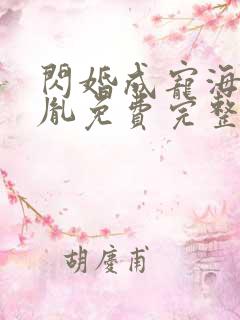 閃婚成寵海
胤免費完整
胡慶甫